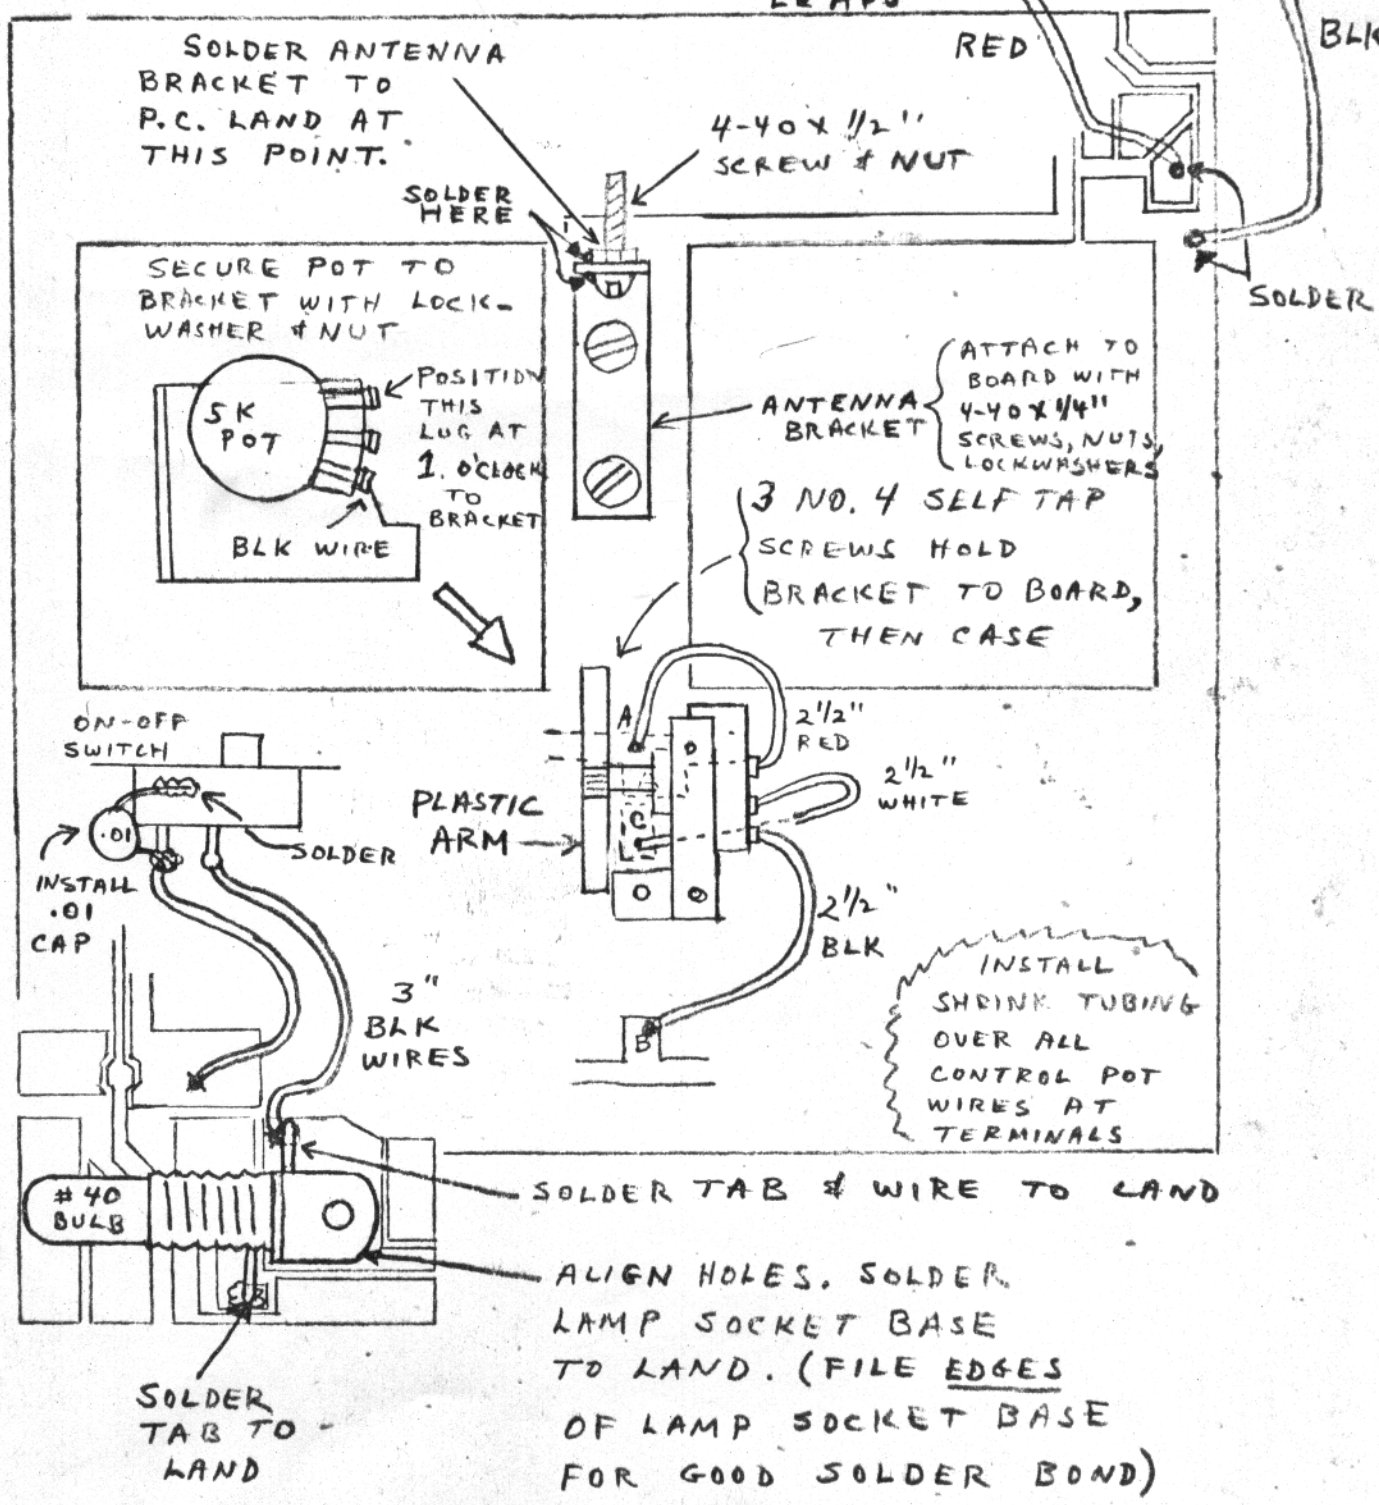 LEADS
RED
BLK
SOLDER ANTENNA
BRACKET TO
P.C. LAND AT
THIS POINT.
4-40 X 1/2"
SCREW & NUT
SOLDER
HERE
SOLDER
SECURE POT TO
BRACKET WITH LOCK-
WASHER & NUT
5K
POT
POSITION
THIS
LUG AT
1. O'CLOCK
TO
BRACKET
BLK WIRE
ANTENNA
BRACKET
ATTACH TO
BOARD WITH
4-40 X 1/4"
SCREWS, NUTS,
LOCKWASHERS
3 NO. 4 SELF TAP
SCREWS HOLD
BRACKET TO BOARD,
THEN CASE
ON-OFF
SWITCH
.01
SOLDER
INSTALL
.01
CAP
PLASTIC
ARM
A
C
2 1/2"
RED
2 1/2"
WHITE
2 1/2"
BLK
B
3"
BLK
WIRES
INSTALL
SHRINK TUBING
OVER ALL
CONTROL POT
WIRES AT
TERMINALS
#40
BULB
SOLDER TAB & WIRE TO LAND
ALIGN HOLES. SOLDER
LAMP SOCKET BASE
TO LAND. (FILE EDGES
OF LAMP SOCKET BASE
FOR GOOD SOLDER BOND)
SOLDER
TAB TO
LAND